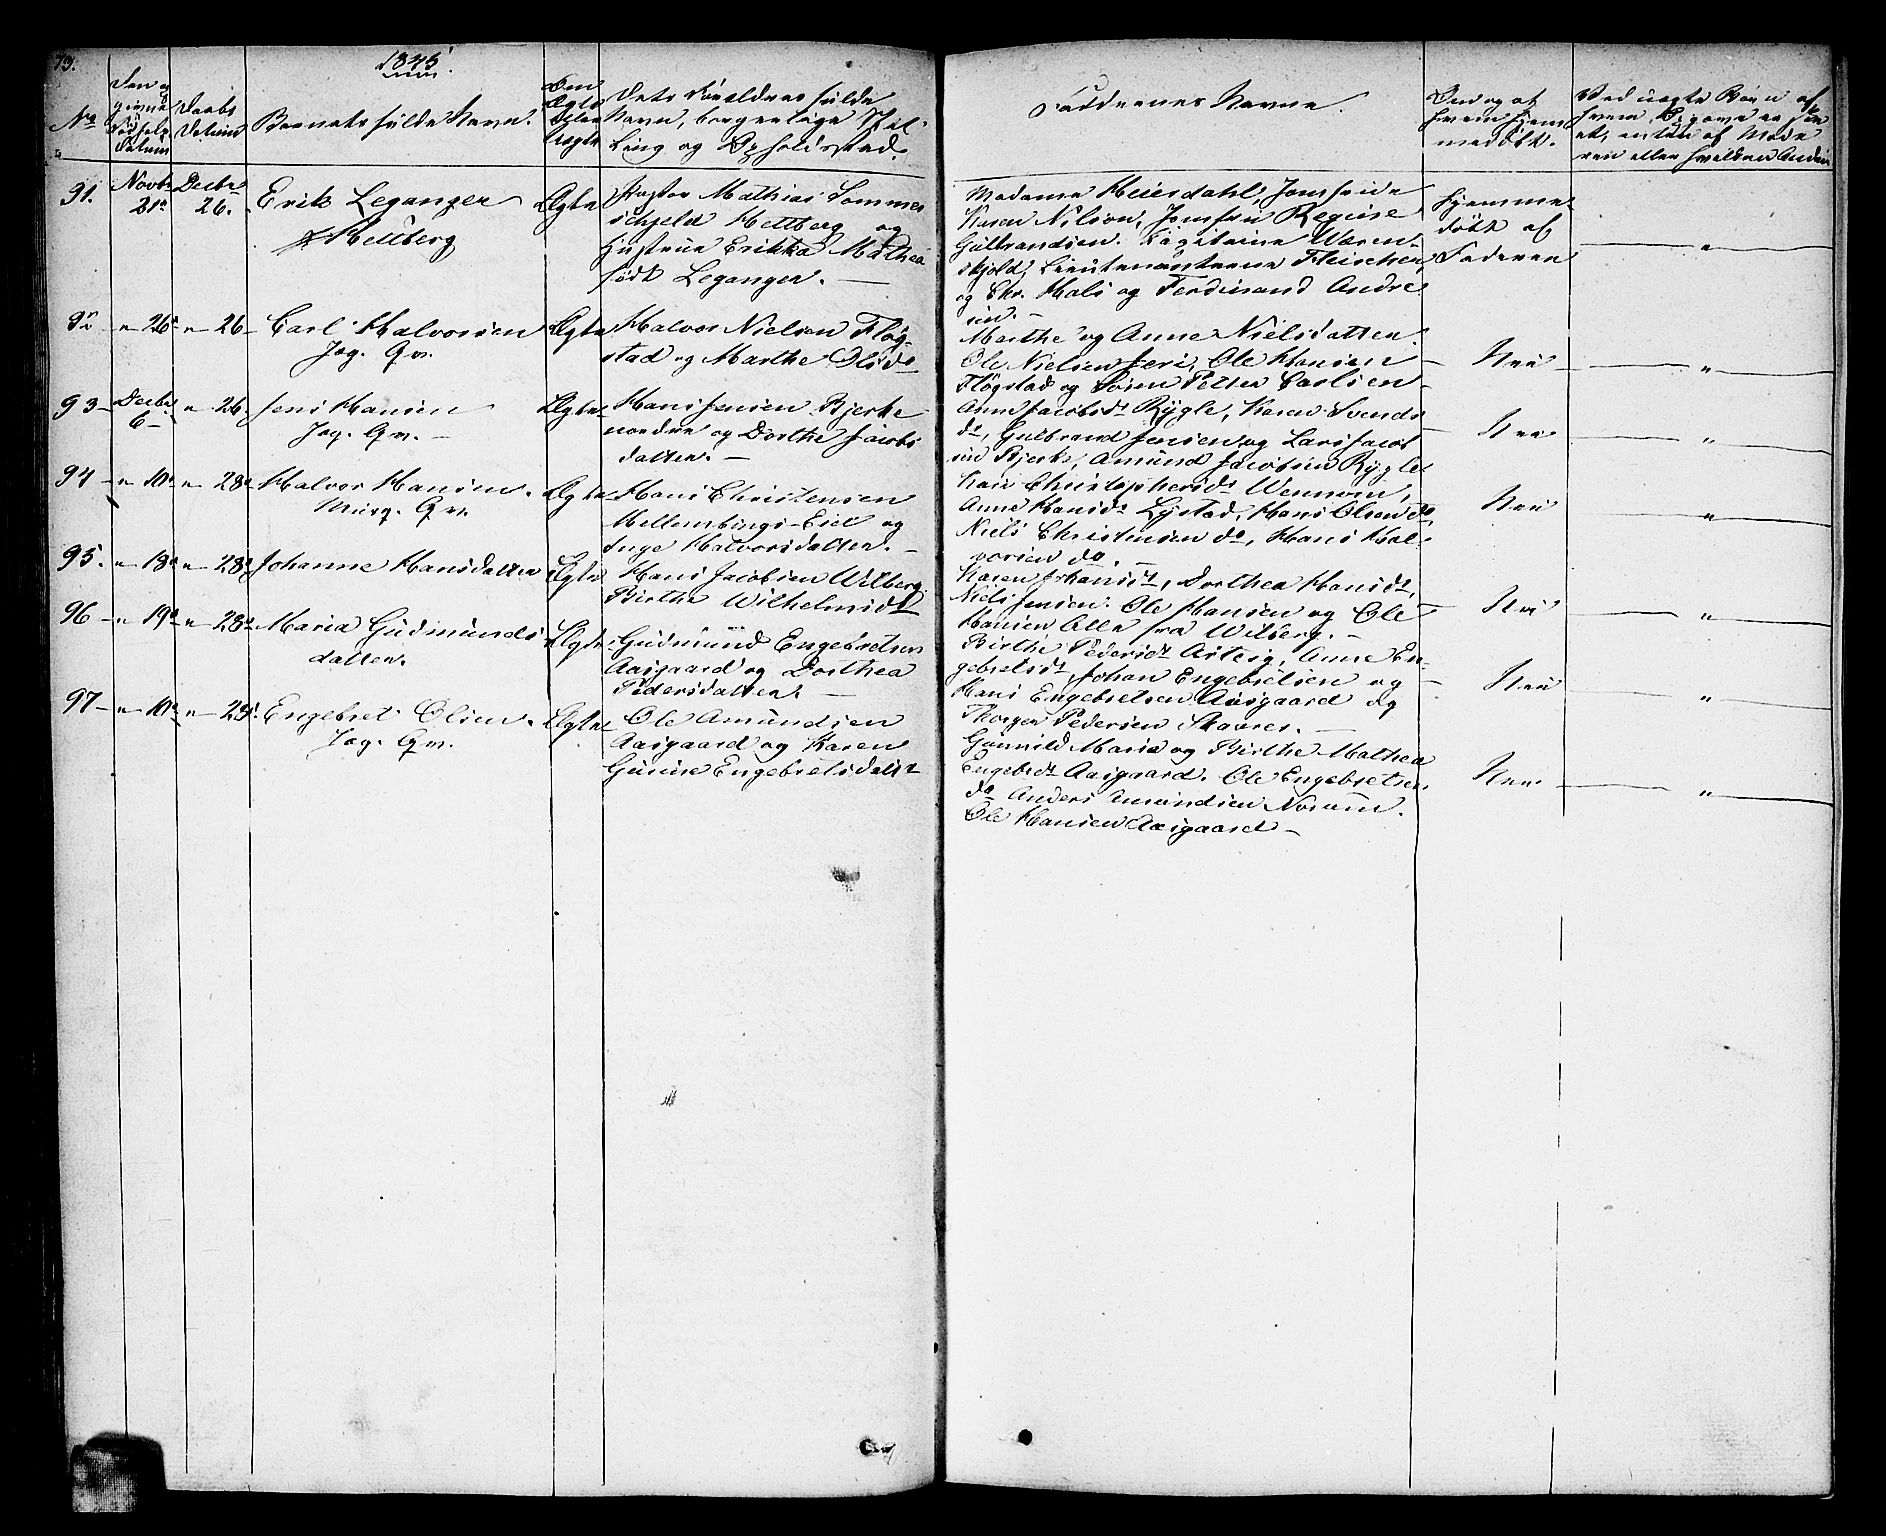 73.
1845.
No
Den op
givne
Fødsels
Datum
Daabs
Datum
Barnets fulde Navn.
Om
Ægte
eller
Uægte
Dets Forældres fulde
Navn, borgerlige Stil-
ling og Opholdssted.
Faddernes Navne.
Om og af
hvem hjem
medøbt.
Ved uægte Børn af
hvem Opgave er skee
et, enten af Mode
ren eller hvilken Anden
91.
Novbr
21de
Decbr
26.
Erik Leganger
Hettberg
Ægte
Pastor Mathias Sommer
schjeld Hettberg og
Hustrue Erikka Mathea
født Leganger. —
Madame Heierdahl, Jomfrue
Karen Nilson, Jomfru Regine
Gulbrandsen. Capitaine Wæren-
skjold, Lieutenanterne Fleischer,
og Chr. Hals og Ferdinand Andre
sen. —
Hjemme-
døbt af
Faderen
— " —
92 — " 26 — " — 26 —
Carl Halvorsen
Jag. Qv.
Ægte
Halvor Nielsen Fløg-
stad og Marthe Olsdr
Marthe og Anne Nielsdatter.
Ole Nielsen Jeri, Ole Hansen
Fløgstad og Søren Petter Carlsen
Nei
— " —
93 —
Decbr
6 —
" — 26.
Jens Hansen
Jag. Qv. —
Ægte
Hans Jensen Bjerke
nordre og Dorthe Jacobs
datter. —
Anne Jacobsdr Rygle, Karen Svends
dr, Gulbrand Jensen og Lars Jacob
sen Bjerke, Amund Jacobsen Rygle
Nei
— " —
94 — " 10de " — 28de
Halvor Hansen.
Musq. Qv.
Ægte
Hans Christensen
Mellembings-Eiet og
Inge Halvorsdatter. —
Kari Christophersdr Wennom,
Anne Hansdr Lystad, Hans Olsen do,
Niels Christensen do, Hans Hal-
vorsen do. —
Nei
— " —
95. — " 18de " — 28de
Johanne Hansdatter
Ægte
Hans Jacobsen Wilberg
Birthe Wilhelmsdr
Karen Johansdr, Dorthea Hansdr,
Niels Jensen. Ole Hansen og Ole
Hansen Alle fra Wilberg. —
Nei
— " —
96 — " 19de " — 28de
Maria Gudmunds
datter.
Ægte
Gudmund Engebretsen
Aasgaard og Dorthea
Pedersdatter. —
Birthe Pedersdr Arteig, Anne En-
gebretsdr, Johan Engebretsen og
Hans Engebretsen Aasgaard og
Thorger Pedersen Skaarer. —
Nei
— " —
97 — " 10de " — 29de
Engebret Olsen.
Jag. Qv.
Ægte
Ole Amundsen
Aasgaard og Karen
Gurine Engebretsdatr
Gunnild Maria og Birthe Mathea
Engebrdr Aasgaard. Ole Engebretsen
do Anders Amundsen Norum.
Ole Hansen Aasgaard —
Nei
— " —